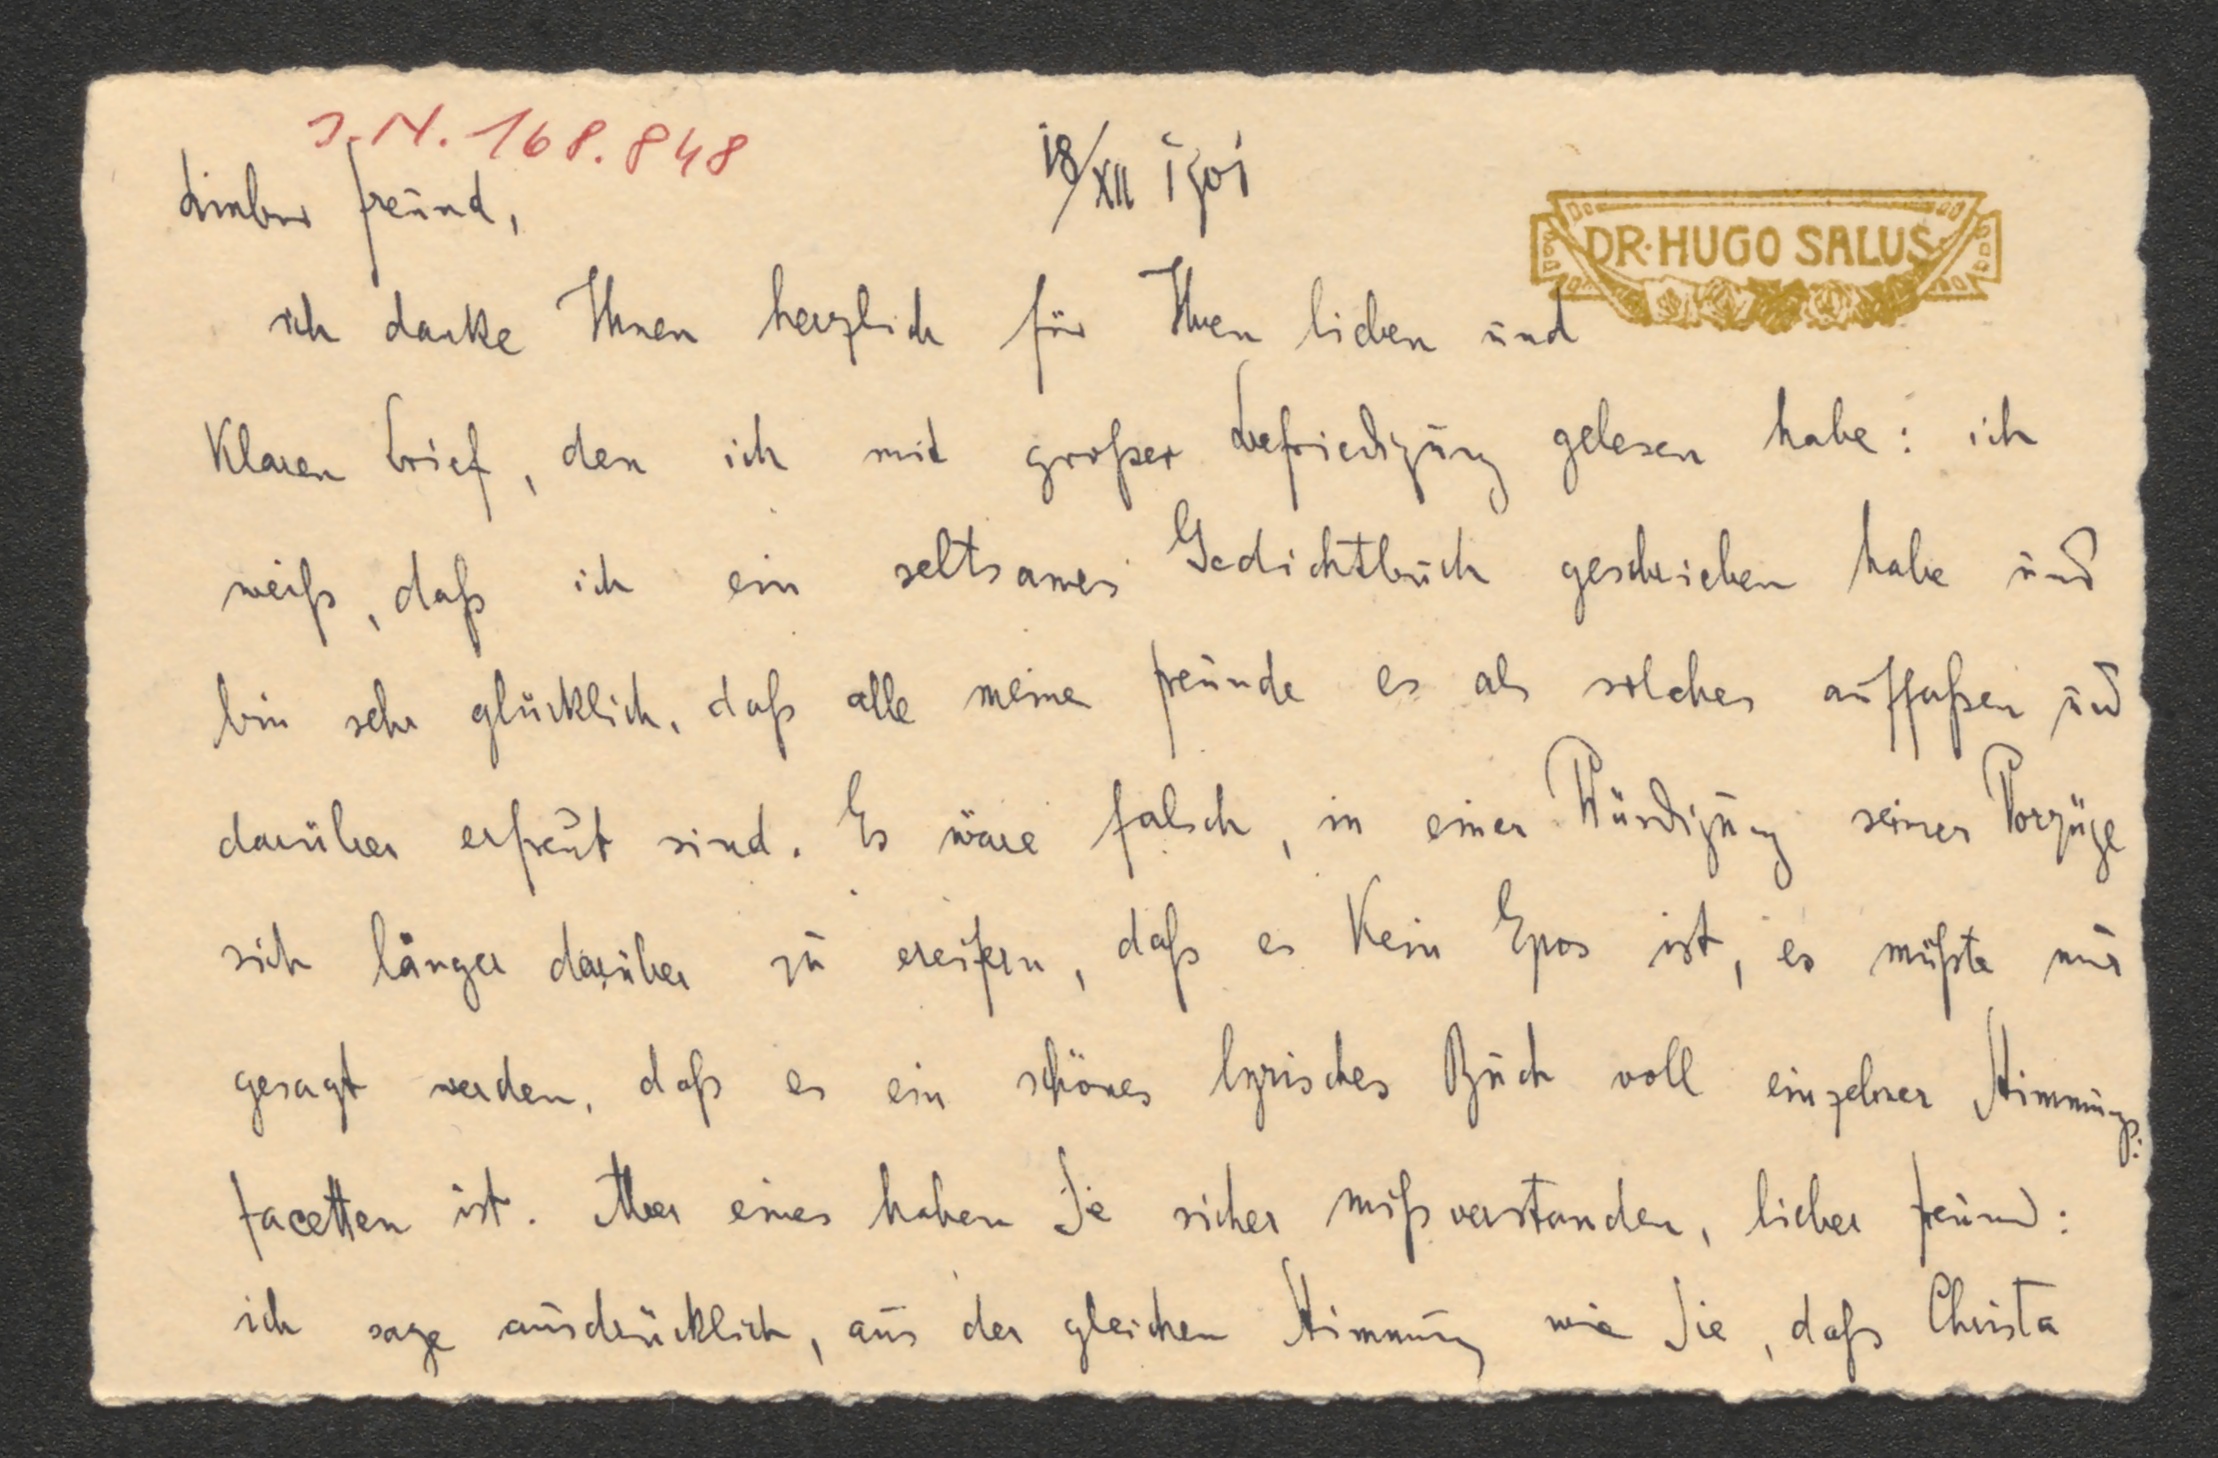 J.N. 168.848
18/XII 1901
DR. HUGO SALUS
Lieber Freund,
ich danke Ihnen herzlich für Ihren lieben und
klaren Brief, den ich mit großer Befriedigung gelesen habe: ich
weiß, daß ich ein seltsames Gedichtbuch geschrieben habe und
bin sehr glücklich, daß alle meine Freunde es als solches auffaßen und
darüber erfreut sind. Es wäre falsch, in einer Würdigung seiner Vorzüge
sich länger darüber zu ereifern, daß es kein Epos ist, es müßte nur
gesagt werden, daß es ein schönes lyrisches Buch voll einzelner Stimmungs:
facetten ist. Aber eines haben Sie sicher mißverstanden, lieber Freund:
ich sage ausdrücklich, aus der gleichen Stimmung wie Sie, daß Christa